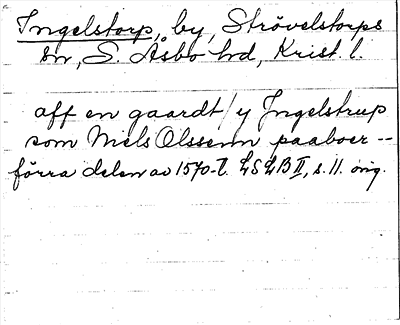 Ingelstorp, by, Strövelstorps
sn, S. Åsbo hd, Krist. l.
aff en gaardt / y Jngelstrup
som Niels Olssenn paaboer --
förra delen av 1570-t. LSLB II, s. 11. orig.